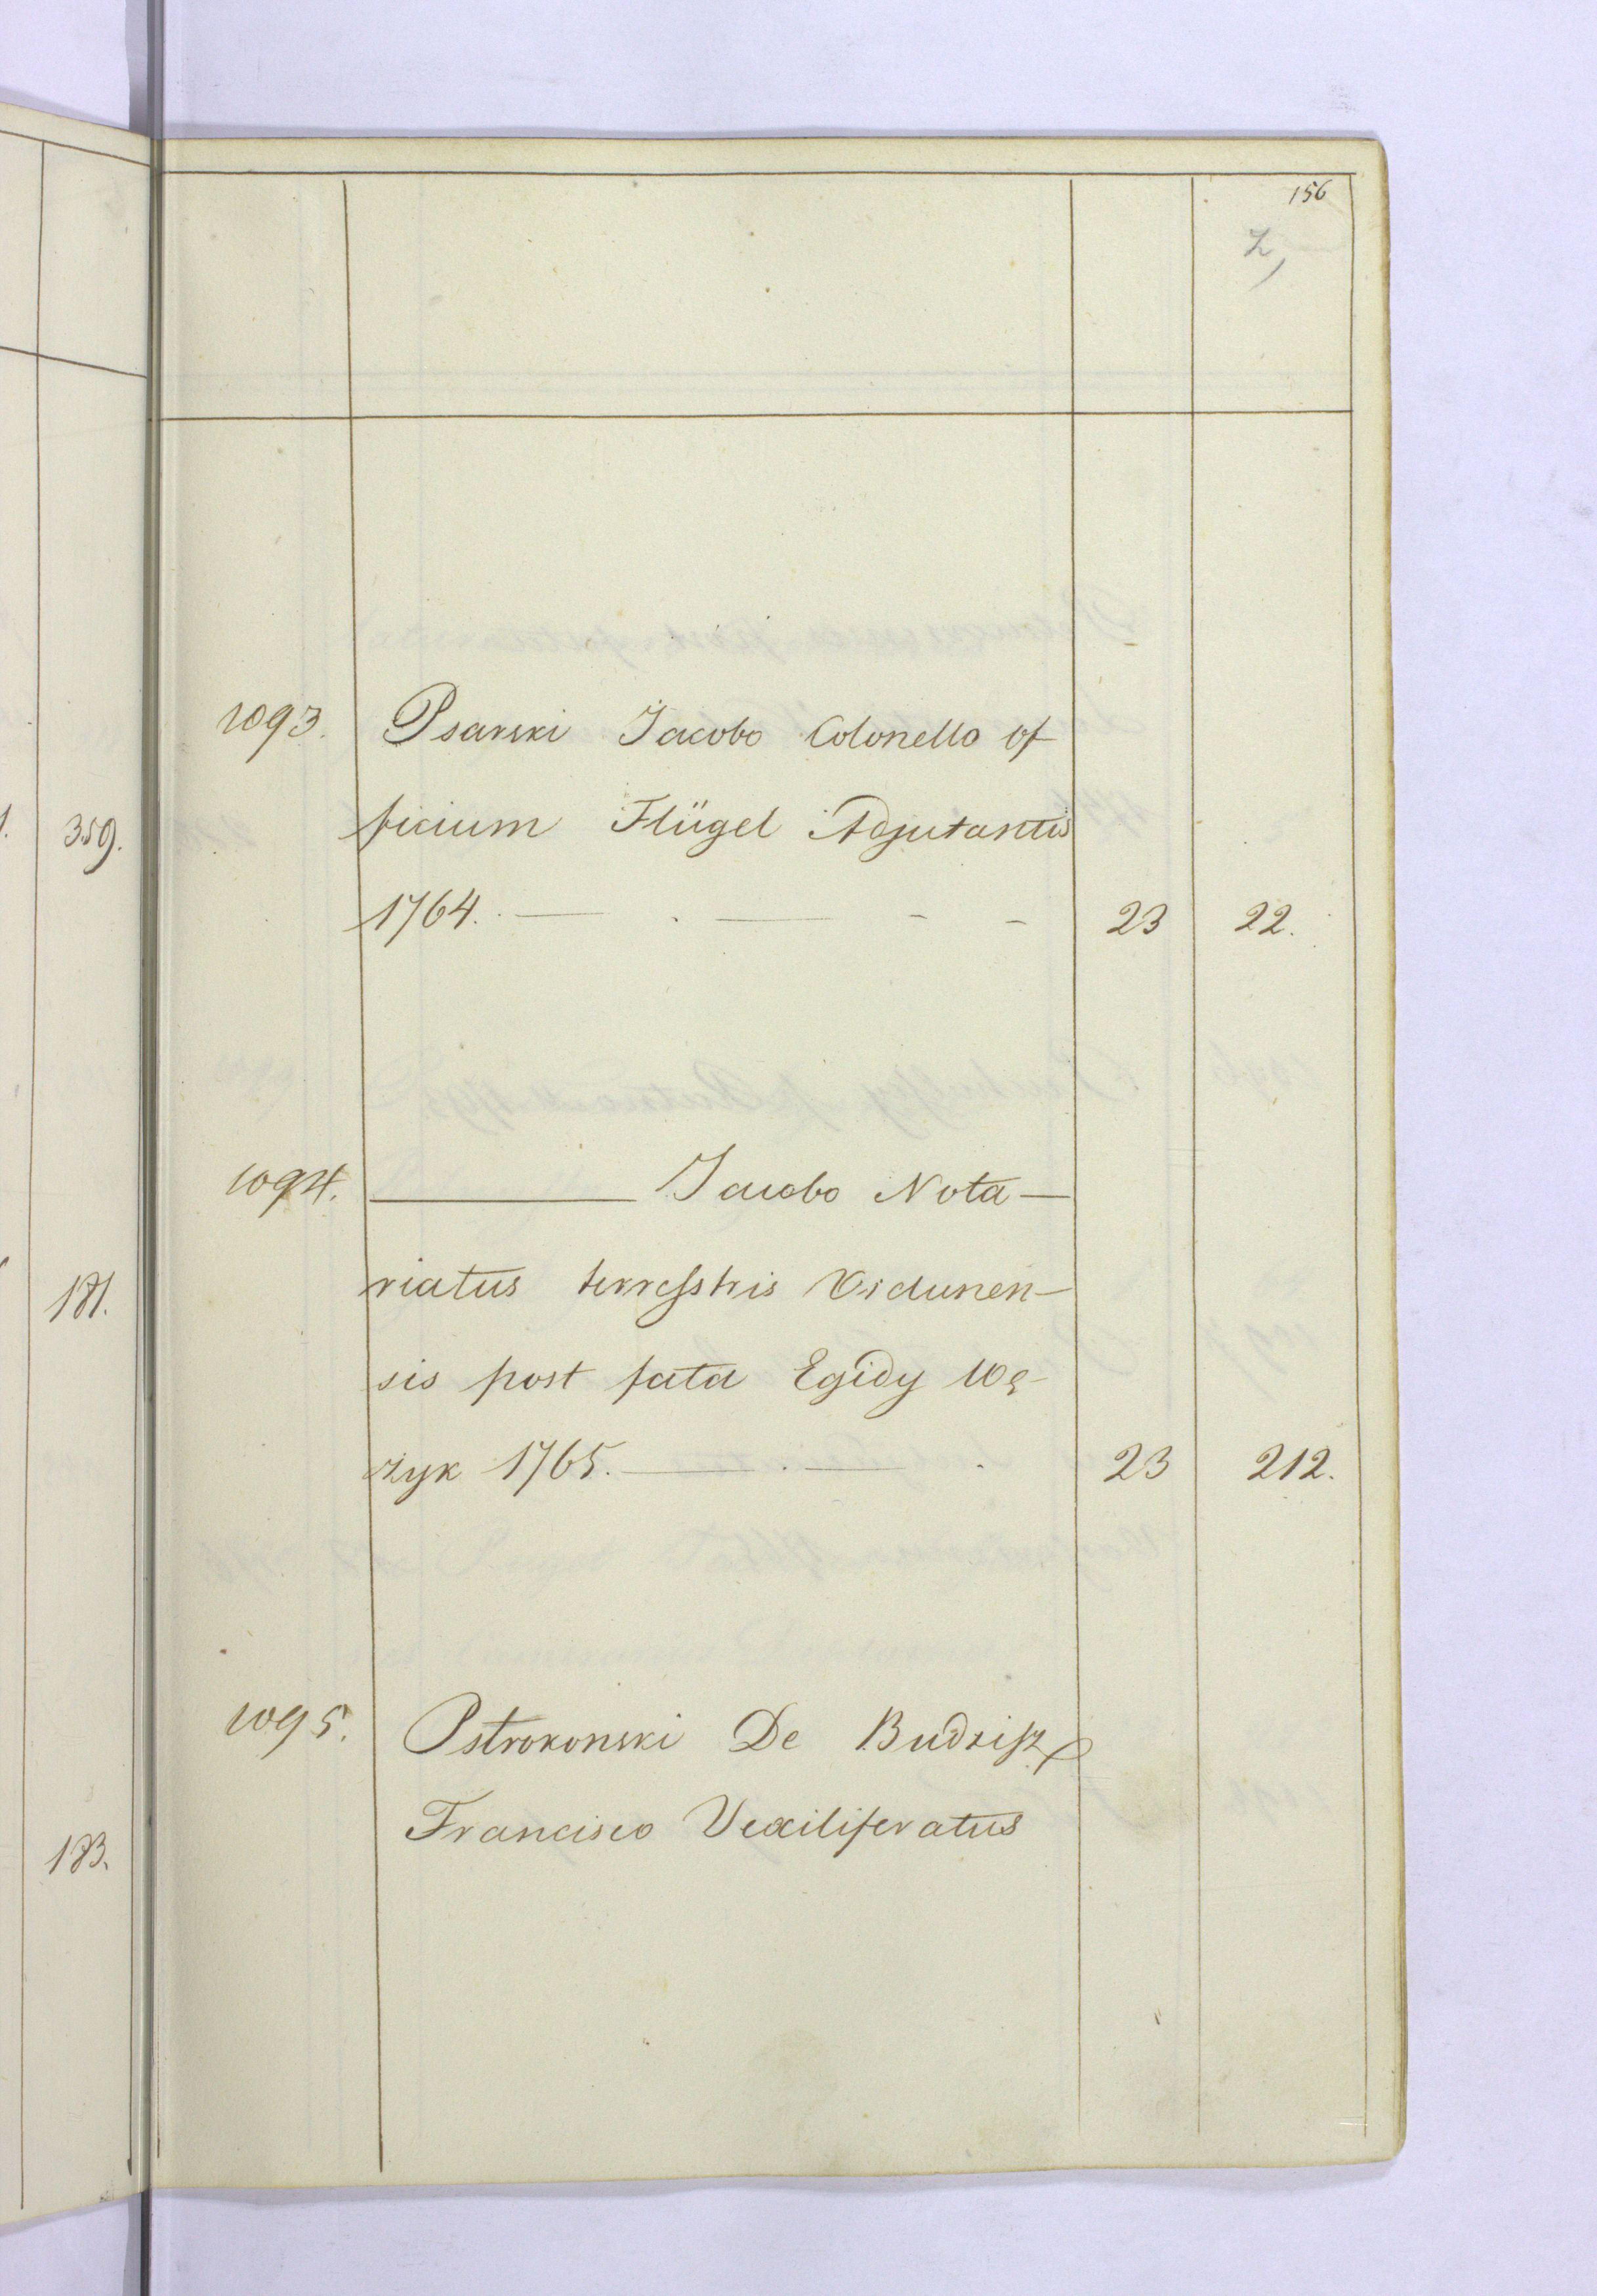 156
1093. Psarski Jacobo Colonello of
ficium Flügel Adjutantis
1764. — . — - - 23 22.
1094. ——— Jacobo Nota-
riatus terresstris Vidunen-
sis post fata Egidy Wę-
żyk 1765. — . — . 23 212.
1095. Pstrokonski De Budzisz
Francisco Vexiliferatus
359.
181.
183.